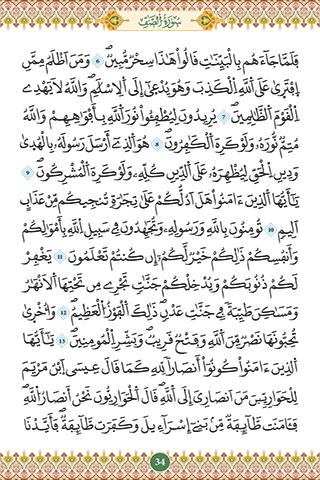 سُورَةُ الصَّفِّ
فَلَمَّا جَآءَهُم بِالْبَيِّنَٰتِ قَالُوا۟ هَٰذَا سِحْرٌ مُّبِينٌ ۖ ٦ وَمَنَ اَظْلَمُ مِمَّنِ
اِ۪فْتَر۪يٰ عَلَى اَللَّهِ اِ۬لْكَذِبَ وَهُوَ يُدْع۪يٰٓ إِلَى اَلِاسْلَٰمِ ۖ وَاللَّهُ لَا يَهْدِے
اِ۬لْقَوْمَ اَ۬لظَّٰلِمِينَ ۖ ٧ يُرِيدُونَ لِيُطْفِـُٔوا۟ نُورَ اَ۬للَّهِ بِأَفْوَٰهِهِمْ ۖ وَاللَّهُ
مُتِمٌّ نُورَهُۥ وَلَوْ كَرِهَ اَ۬لْكَٰفِرُونَ ۖ ٨ هُوَ اَ۬لذِےٓ أَرْسَلَ رَسُولَهُۥ بِالْهُد۪يٰ
وَدِينِ اِ۬لْحَقِّ لِيُظْهِرَهُۥ عَلَى اَ۬لدِّينِ كُلِّهِۦ وَلَوْ كَرِهَ اَ۬لْمُشْرِكُونَ ۖ ٩
يَٰٓأَيُّهَا اَ۬لذِينَ ءَامَنُوا۟ هَلَ اَدُلُّكُمْ عَلَىٰ تِجَٰرَةٍ تُنجِيكُم مِّنْ عَذَابٍ
اَلِيمٍ ١٠ تُومِنُونَ بِاللَّهِ وَرَسُولِهِۦ وَتُجَٰهِدُونَ فِے سَبِيلِ اِ۬للَّهِ بِأَمْوَٰلِكُمْ
وَأَنفُسِكُمْ ۖ ذَٰلِكُمْ خَيْرٌ لَّكُمُۥٓ إِن كُنتُمْ تَعْلَمُونَ ۖ ١١ يَغْفِرْ
لَكُمْ ذُنُوبَكُمْ وَيُدْخِلْكُمْ جَنَّٰتٍ تَجْرِے مِن تَحْتِهَا اَ۬لَانْهَٰرُ
وَمَسَٰكِنَ طَيِّبَةً فِے جَنَّٰتِ عَدْنٍ ۖ ذَٰلِكَ اَ۬لْفَوْزُ اُ۬لْعَظِيمُ ۖ ١٢ وَأُخْر۪يٰ
تُحِبُّونَهَا نَصْرٌ مِّنَ اَ۬للَّهِ وَفَتْحٌ قَرِيبٌ ۖ وَبَشِّرِ اِ۬لْمُومِنِينَ ۖ ١٣ يَٰٓأَيُّهَا
اَ۬لذِينَ ءَامَنُوا۟ كُونُوٓا۟ أَنصَاراً لِّلهِ كَمَا قَالَ عِيسَى اَ۪بْنُ مَرْيَمَ
لِلْحَوَارِيِّـۧنَ مَنَ اَنصَارِيَ إِلَى اَ۬للَّهِ ۖ قَالَ اَ۬لْحَوَارِيُّونَ نَحْنُ أَنصَارُ اُ۬للَّهِ ۖ
فَـَٔامَنَت طَّآئِفَةٌ مِّنۢ بَنِےٓ إِسْرَآءِيلَ وَكَفَرَت طَّآئِفَةٌ ۖ فَأَيَّدْنَا
34